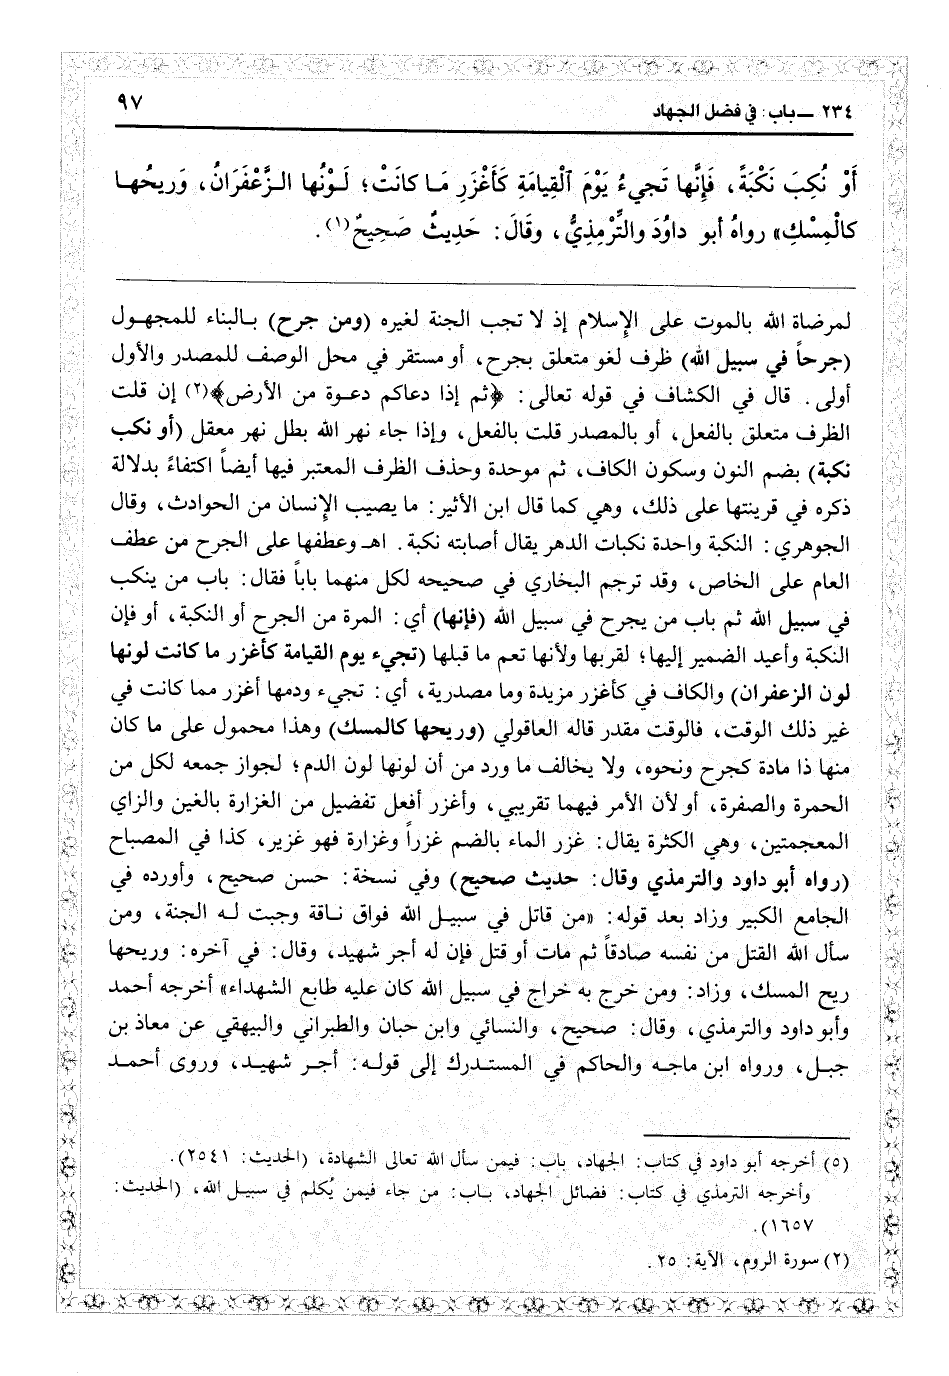 ٢٣٤ ــ باب: في فضل الجهاد
٩٧
أَوْ نُكِبَ نَكْبَةً، فَإِنَّها تَجيءُ يَوْمَ ٱلْقِيامَةِ كَأَغْزَرِ مَا كانَتْ؛ لَوْنُها الزَّعْفَرَانُ، وَريحُها
كالْمِسْكِ» رواهُ أبو داوُدَ والتِّرْمِذيُّ، وقَالَ: حَدِيثٌ صَحِيحٌ(١).
لمرضاة الله بالموت على الإسلام إذ لا تجب الجنة لغيره (ومن جرح) بالبناء للمجهول
(جرحاً في سبيل الله) ظرف لغو متعلق بجرح، أو مستقر في محل الوصف للمصدر والأول
أولى. قال في الكشاف في قوله تعالى: ﴿ثم إذا دعاكم دعوة من الأرض﴾(٢) إن قلت
الظرف متعلق بالفعل، أو بالمصدر قلت بالفعل، وإذا جاء نهر الله بطل نهر معقل (أو نكب
نكبة) بضم النون وسكون الكاف، ثم موحدة وحذف الظرف المعتبر فيها أيضاً اكتفاءً بدلالة
ذكره في قرينتها على ذلك، وهي كما قال ابن الأثير: ما يصيب الإنسان من الحوادث، وقال
الجوهري: النكبة واحدة نكبات الدهر يقال أصابته نكبة. اهـ وعطفها على الجرح من عطف
العام على الخاص، وقد ترجم البخاري في صحيحه لكل منهما باباً فقال: باب من ينكب
في سبيل الله ثم باب من يجرح في سبيل الله (فإنها) أي: المرة من الجرح أو النكبة، أو فإن
النكبة وأعيد الضمير إليها؛ لقربها ولأنها تعم ما قبلها (تجيء يوم القيامة كأغزر ما كانت لونها
لون الزعفران) والكاف في كأغزر مزيدة وما مصدرية، أي: تجيء ودمها أغزر مما كانت في
غير ذلك الوقت، فالوقت مقدر قاله العاقولي (وريحها كالمسك) وهذا محمول على ما كان
منها ذا مادة كجرح ونحوه، ولا يخالف ما ورد من أن لونها لون الدم؛ لجواز جمعه لكل من
الحمرة والصفرة، أو لأن الأمر فيهما تقريبي، وأغزر أفعل تفضيل من الغزارة بالغين والزاي
المعجمتين، وهي الكثرة يقال: غزر الماء بالضم غزراً وغزارة فهو غزير، كذا في المصباح
(رواه أبو داود والترمذي وقال: حديث صحيح) وفي نسخة: حسن صحيح، وأورده في
الجامع الكبير وزاد بعد قوله: «من قاتل في سبيل الله فواق ناقة وجبت له الجنة، ومن
سأل الله القتل من نفسه صادقاً ثم مات أو قتل فإن له أجر شهيد، وقال: في آخره: وريحها
ريح المسك، وزاد: ومن خرج به خراج في سبيل الله كان عليه طابع الشهداء» أخرجه أحمد
وأبو داود والترمذي، وقال: صحيح، والنسائي وابن حبان والطبراني والبيهقي عن معاذ بن
جبل، ورواه ابن ماجه والحاكم في المستدرك إلى قوله: أجر شهيد، وروى أحمد
(٥) أخرجه أبو داود في كتاب: الجهاد، باب: فيمن سأل الله تعالى الشهادة، (الحديث: ٢٥٤١).
وأخرجه الترمذي في كتاب: فضائل الجهاد، باب: من جاء فيمن يُكلم في سبيل الله، (الحديث:
١٦٥٧).
(٢) سورة الروم، الآية: ٢٥.